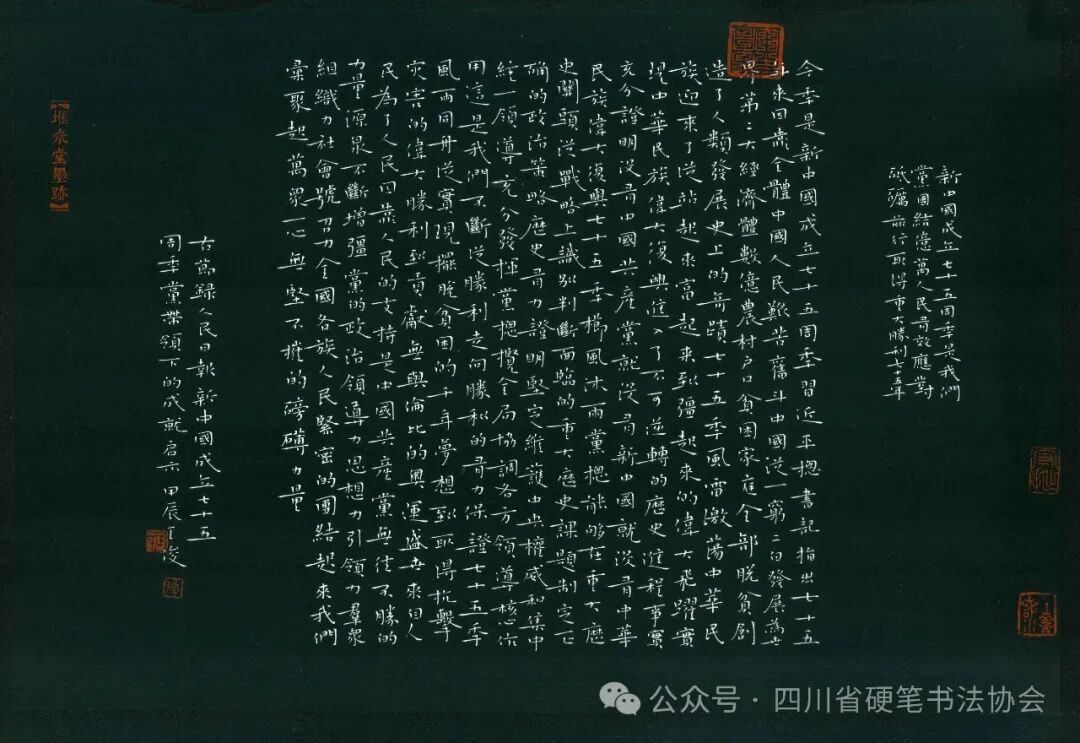 新中國成立七十五周年是我們
黨團結億萬人民有效應對
砥礪前行取得重大勝利七五年
今年是新中國成立七十五周年習近平總書記指出七十五
年來回黨全體中國人民艱苦奮斗中國從一窮二白發展為世
界第二大經濟體數億農村戶口貧困家庭全部脫貧創
造了人類發展史上的奇蹟七十五年風雷激蕩中華民
族迎來了從站起來富起來到彊起來的偉大飛躍實
現中華民族偉大復興進入了不可逆轉的歷史進程事實
充分證明沒有中國共產黨就沒有新中國就沒有中華
民族偉大復興七十五年櫛風沐雨黨總能够在重大歷
史關頭從戰略上識別判斷面臨的重大歷史課題制定正
確的政治策略歷史有力證明堅定維護中央權威和集中
統一領導充分發揮黨總攬全局協調各方領導核心作
用這是我們不斷從勝利走向勝利的有力保證七十五年
風雨同舟從實現擺脫貧困的千年夢想到取得抗擊
灾害的偉大勝利到貢獻無與倫比的奧運盛世來自人
民為了人民回黨人民的支持是中國共產黨無往不勝的
力量源泉不斷增彊黨的政治領導力思想力引領力羣眾
組織力社會號召力全國各族人民緊密的團結起來我們
彙聚起萬眾一心無堅不摧的磅礴力量
右節錄人民日報新中國成立七十五
周年黨帶領下的成就启示甲辰王俊
堂墨跡
公众号·四川省硬笔书法协会